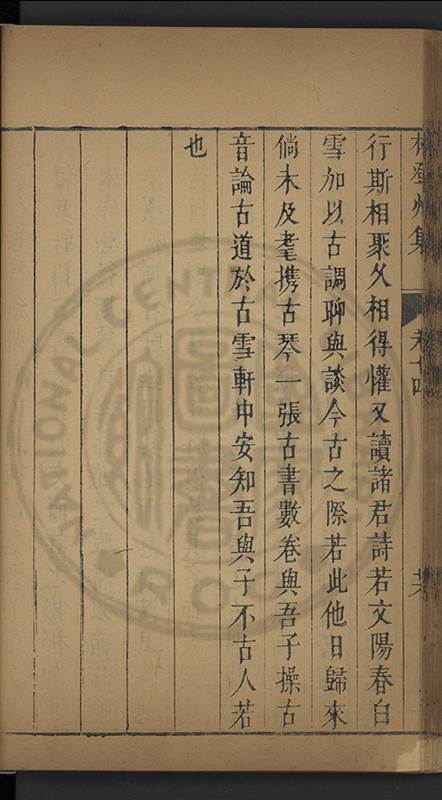 林登州集 卷十四
行斯相聚久相得懽又讀諸君詩若文陽春白
雪加以古調聊與談今古之際若此他日歸來
倘未及耄携古琴一張古書數卷與吾子操古
音論古道於古雪軒中安知吾與子不古人若
也